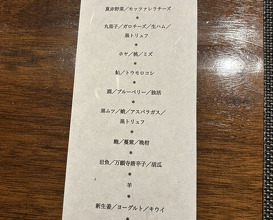 夏野菜／モッツァレラチーズ
丸茄子／ガロチーズ／生ハム／
黒トリュフ
ホヤ／桃／ミズ
鮎／トウモロコシ
鹿／ブルーベリー／独活
黒ムツ／蛤／アスパラガス／
黒トリュフ
岩魚／万願寺唐辛子／胡瓜
羊
新生姜／ヨーグルト／キウイ